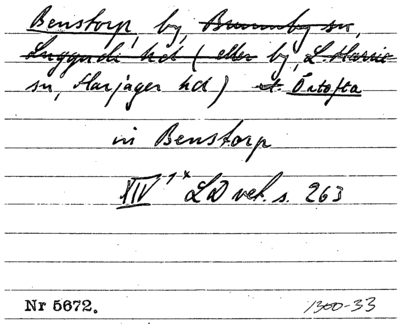 Benstorp, by, Brunnby sn,
Luggude hd (eller by, L. Harrie
sn, Harjager hd) et. Örtofta
in Benstorp
XIV 1x LD vet. s. 263
Nr 5672. 1300-33